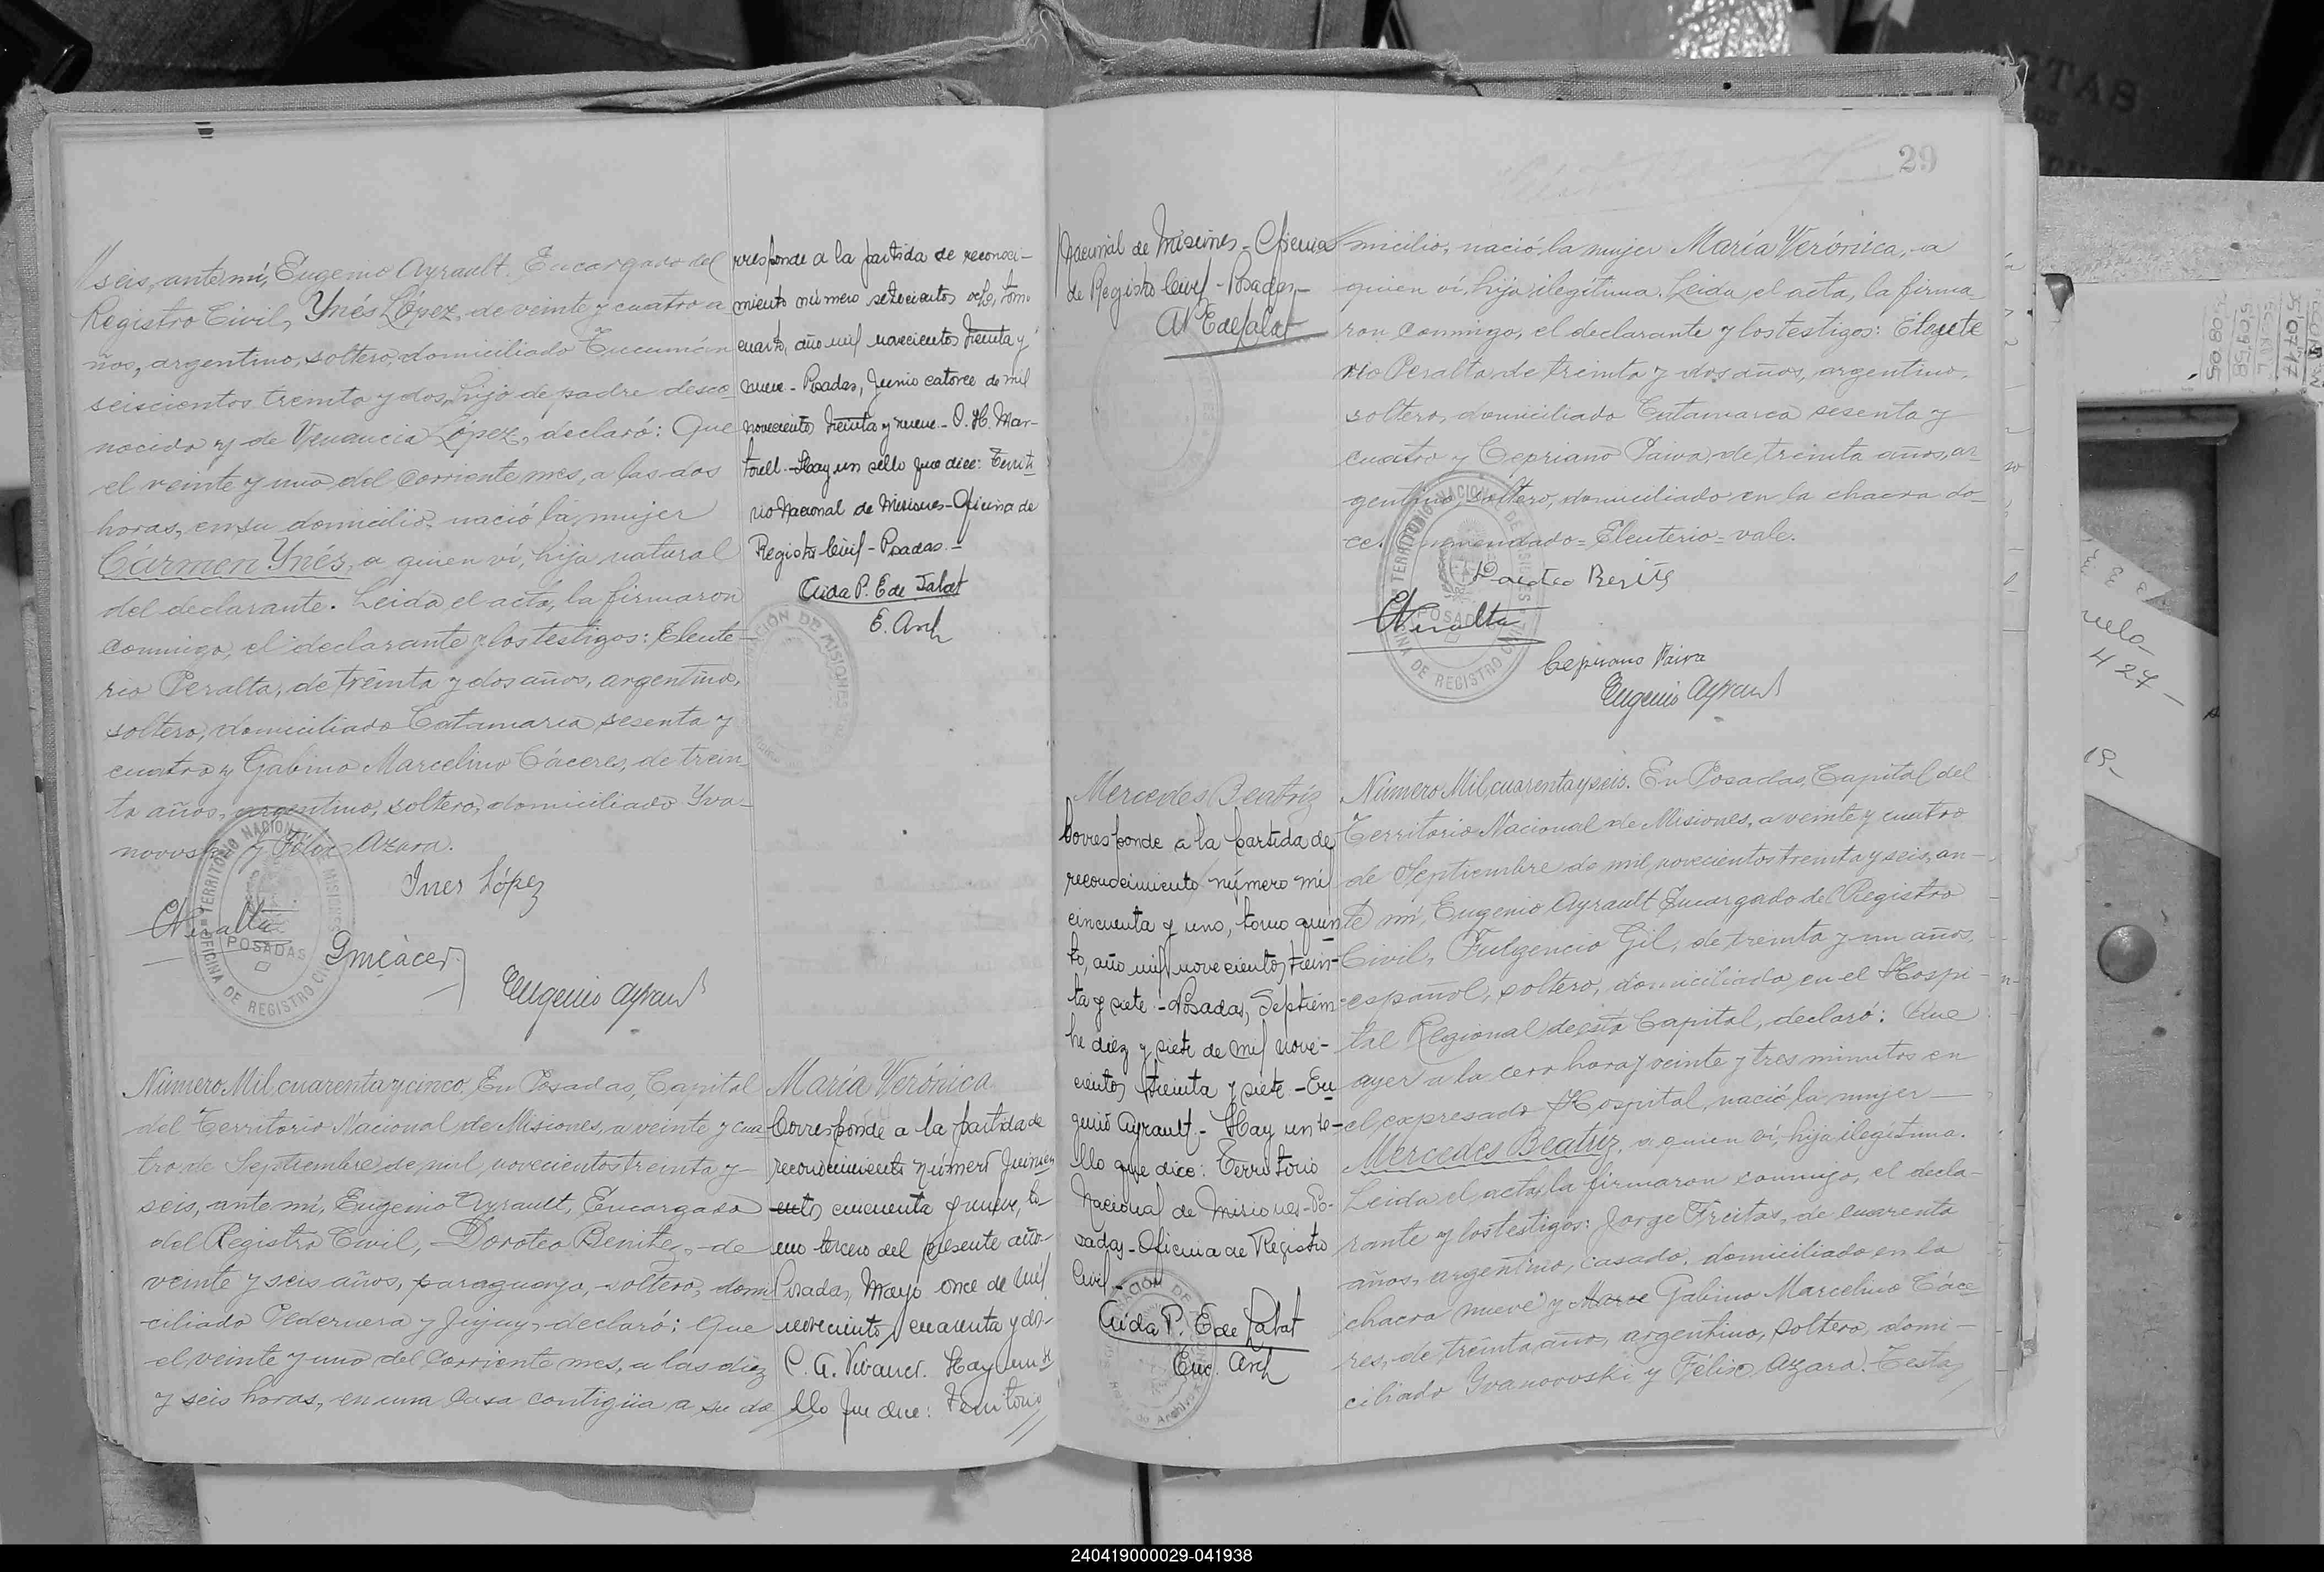 seis, ante mí, Eugenio Ayrault, Encargado del
Registro Civil, Ynés López, de veinte y cuatro a
ños, argentino, soltero, domiciliado Tucumán
seiscientos treinta y dos, hijo de padre desco
nocido y de Venancia López, declaró: Que
el veinte y uno del corriente mes, a las dos
horas, en su domicilio, nació la mujer
Cármen Ynés, a quien ví, hija natural
del declarante. Leida el acta, la firmaron
conmigo, el declarante y los testigos: Eleute-
rio Peralta, de treinta y dos años, argentino,
soltero, domiciliado Catamarca sesenta y
cuatro y Gabino Marcelino Cáceres, de trein
ta años, argentino, soltero, domiciliado Yva-
novski y Félix Azara.
Ines López
Eugenio Ayrault
TERRITORIO NACIONAL DE MISIONES
POSADAS
OFICINA DE REGISTRO CIVIL
rresponde a la partida de reconoci-
miento número setecientos ocho, tomo
cuarto, año mil novecientos treinta y
nueve - Posadas, Junio catorce de mil
novecientos treinta y nueve - O. H. Mar-
torell - Hay un sello que dice: Territo
rio Nacional de Misiones - Oficina de
Registro Civil - Posadas. -
Aida P. E de Salat
E. Arch
Número Mil cuarenta y cinco. En Posadas, Capital
del Territorio Nacional de Misiones, a veinte y cua
tro de Septiembre de mil novecientos treinta y
seis, ante mí, Eugenio Ayrault, Encargado
del Registro Civil, Doroteo Benitez, de
veinte y seis años, paraguayo, soltero, domi
ciliado Pedernera y Jujuy, declaró: Que
el veinte y uno del corriente mes, a las diez
y seis horas, en una casa contigüa a su do
María Verónica
Corresponde a la partida de
reconocimiento número quinien
entos cincuenta y nueve, to-
mo tercero del presente año-
Posadas, Mayo once de mil
novecientos cuarenta y dos-
C. A. Vivanco. Hay un se
llo que dice: Territorio
29
Nacional de Misiones - Oficina
de Registro Civil - Posadas -
micilio, nació la mujer María Verónica, a
quien ví, hija ilegítima. Leida el acta, la firma
ron conmigo, el declarante y los testigos: Eleute
rio Peralta, de treinta y dos años, argentino,
soltero, domiciliado Catamarca sesenta y
cuatro y Cepriano Paiva, de treinta años, ar
gentino, soltero, domiciliado en la chacra do-
ce. Enmendado = Eleuterio = vale.
Cepriano Paiva
Eugenio Ayrault
TERRITORIO NACIONAL DE MISIONES
POSADAS
OFICINA DE REGISTRO CIVIL
Mercedes Beatríz
Corresponde a la partida de
reconocimiento número mil
cincuenta y uno, tomo quin
to, año mil novecientos trein-
ta y siete - Posadas, Septiem
bre diez y siete de mil nove-
cientos treinta y siete - Eu
genio Ayrault - Hay un se-
llo que dice: Territorio
Nacional de Misiones - Po-
sadas - Oficina de Registro
Civil -
Aida P. E de Salat
Enc. Arch
Número Mil cuarenta y seis. En Posadas, Capital del
Territorio Nacional de Misiones, a veinte y cuatro
de Septiembre de mil novecientos treinta y seis, an-
te mí, Eugenio Ayrault Encargado del Registro
Civil, Fulgencio Gil, de treinta y un años,
español, soltero, domiciliado en el Hospi-
tal Regional de esta Capital, declaró: Que
ayer a la cero hora y veinte y tres minutos en
el expresado Hospital, nació la mujer
Mercedes Beatríz, a quien ví, hija ilegítima.
Leida el acta, la firmaron conmigo, el decla-
rante y los testigos: Jorge Freitas, de cuarenta
años, argentino, casado, domiciliado en la
chacra nueve y Marce Gabino Marcelino Cáce
res, de treinta años, argentino, soltero, domi-
ciliado Yvanovski y Félix Azara. Testa
240419000029-041938